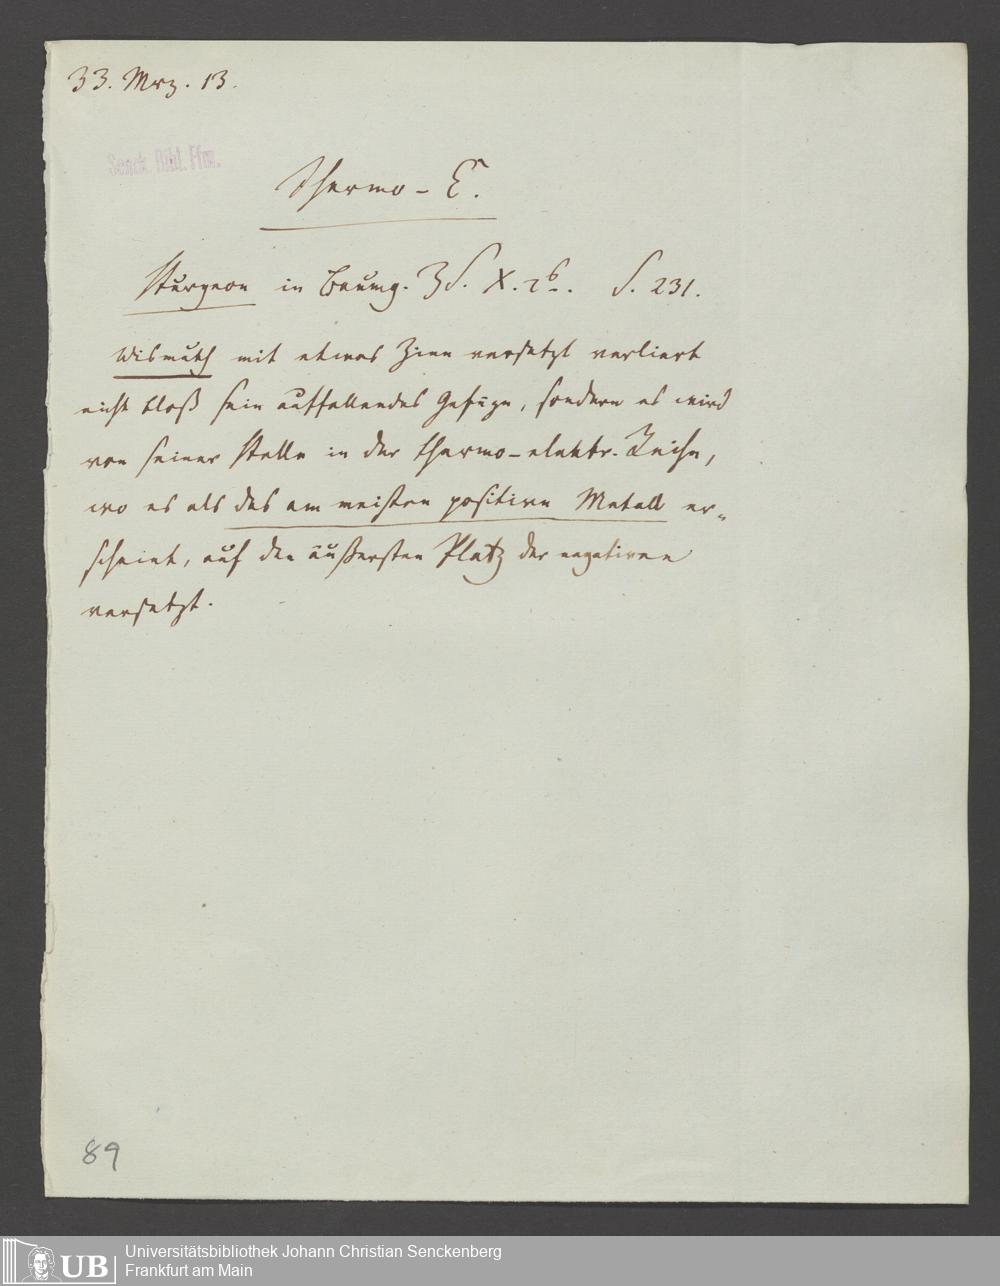 33. Mrz. 13.
Senck. Bibl. Ffm.
Thermo-E.
Sturgeon in Baumg. ZS. X. 2b. S. 231.
Wismuth mit etwas Zinn versetzt verliert
nicht bloß sein auffallendes Gefüge, sondern es wird
von seiner Stelle in der thermo-elektr. Reihe,
wo es als das am meisten positive Metall er„
scheint, auf den äußersten Platz der negativen
versetzt.
89
UB
Universitätsbibliothek Johann Christian Senckenberg
Frankfurt am Main